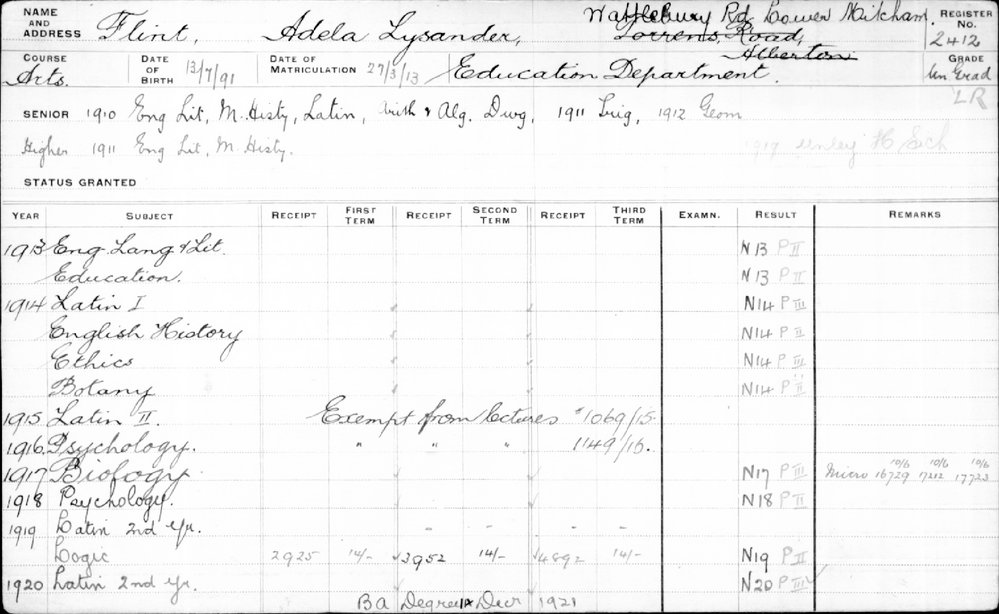 NAME AND ADDRESS Flint, Adela Lysander, Wattlebury Rd Lower Mitcham. REGISTER No. 2412
Torrens Road,
Alberton
COURSE Arts. DATE OF BIRTH 13/7/91 DATE OF MATRICULATION 27/3/13 Education Department. GRADE Un Grad
LR
SENIOR 1910 Eng Lit, M. Histy, Latin, Arith & Alg. Dwg, 1911 Trig, 1912 Geom
Higher 1911 Eng Lit, M Histy. 1919 Unley H Sch
STATUS GRANTED
YEAR SUBJECT RECEIPT FIRST TERM RECEIPT SECOND TERM RECEIPT THIRD TERM EXAMN. RESULT REMARKS
1913 Eng. Lang & Lit. N13 P II
Education. N13 P II
1914 Latin I N14 P III
English History N14 P II
Ethics N14 P III
Botany N14 P II
1915 Latin II. Exempt from lectures 1069/15.
1916. Psychology. " " " 1149/16.
1917 Biology N17 P III Micro 16729 10/6 17212 10/6 17723 10/6
1918 Psychology. N18 P II
1919 Latin 2nd yr. - - - -
Logic 2925 14/- 3952 14/- 4892 14/- N19 P II
1920 Latin 2nd yr. N20 P III
BA Degree Decr 1921